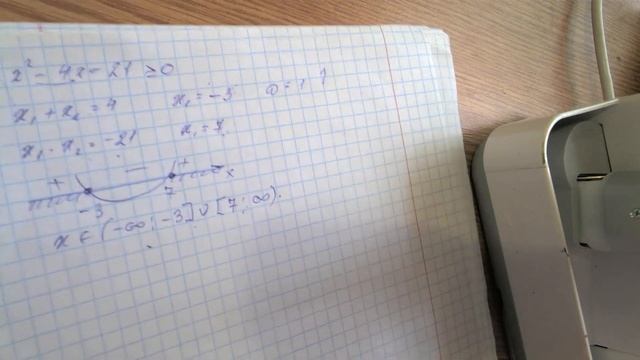 x² - 4x - 21 ≥ 0
x₁ + x₂ = 4 x₁ = -3
x₁ · x₂ = -21 x₁ = 7
+ — + x
-3 7
x ∈ (-∞; -3] ∪ [7; ∞).